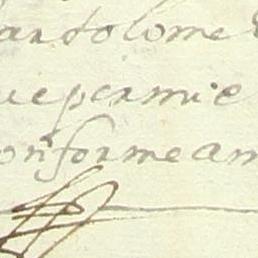 artolome
ue permie
onforme am